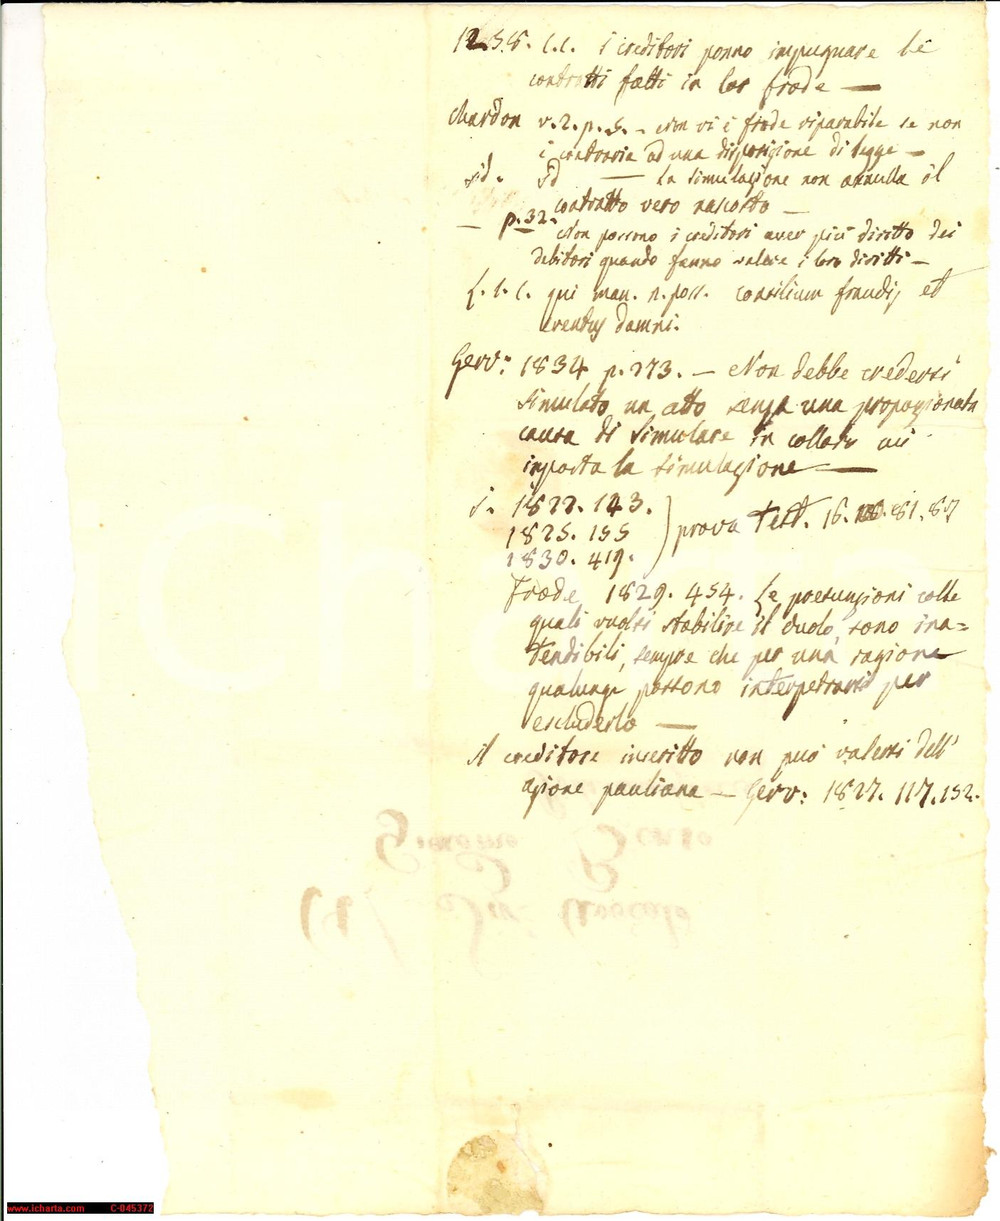 1258. C.C. i creditori ponno impugnare li
contratti fatti in lor frode —
Chardon v. 2. p. 5. - Non vi è frode riparabile se non
è contraria ad una disposizione di legge —
id. id — La simulazione non annulla il
contratto vero nascosto —
— p. 32. - Non possono i creditori aver più diritto dei
debitori quando fanno valere i loro diritti —
qui man. n. poss. consilium fraudis et
eventus damni.
Gerv: 1834 p. 273. — Non debbe credersi
simulato un atto senza una proporzionata
causa di simulare in collo
imposta la simulazione —
1822. 143.
1825. 155
1830. 419. prova test. 16. 81. 87
Frode 1829. 454. Le presunzioni colle
quali vuolsi stabilire il duolo, sono ina=
tendibili, sempre che per una ragione
qualunqe possono interpetrarsi per
escluderlo —
il creditore inscritto non può valersi dell'
azione pauliana — Gerv: 1827. 117. 152.
Giacomo
Avvocato
www.icharta.com C-045372